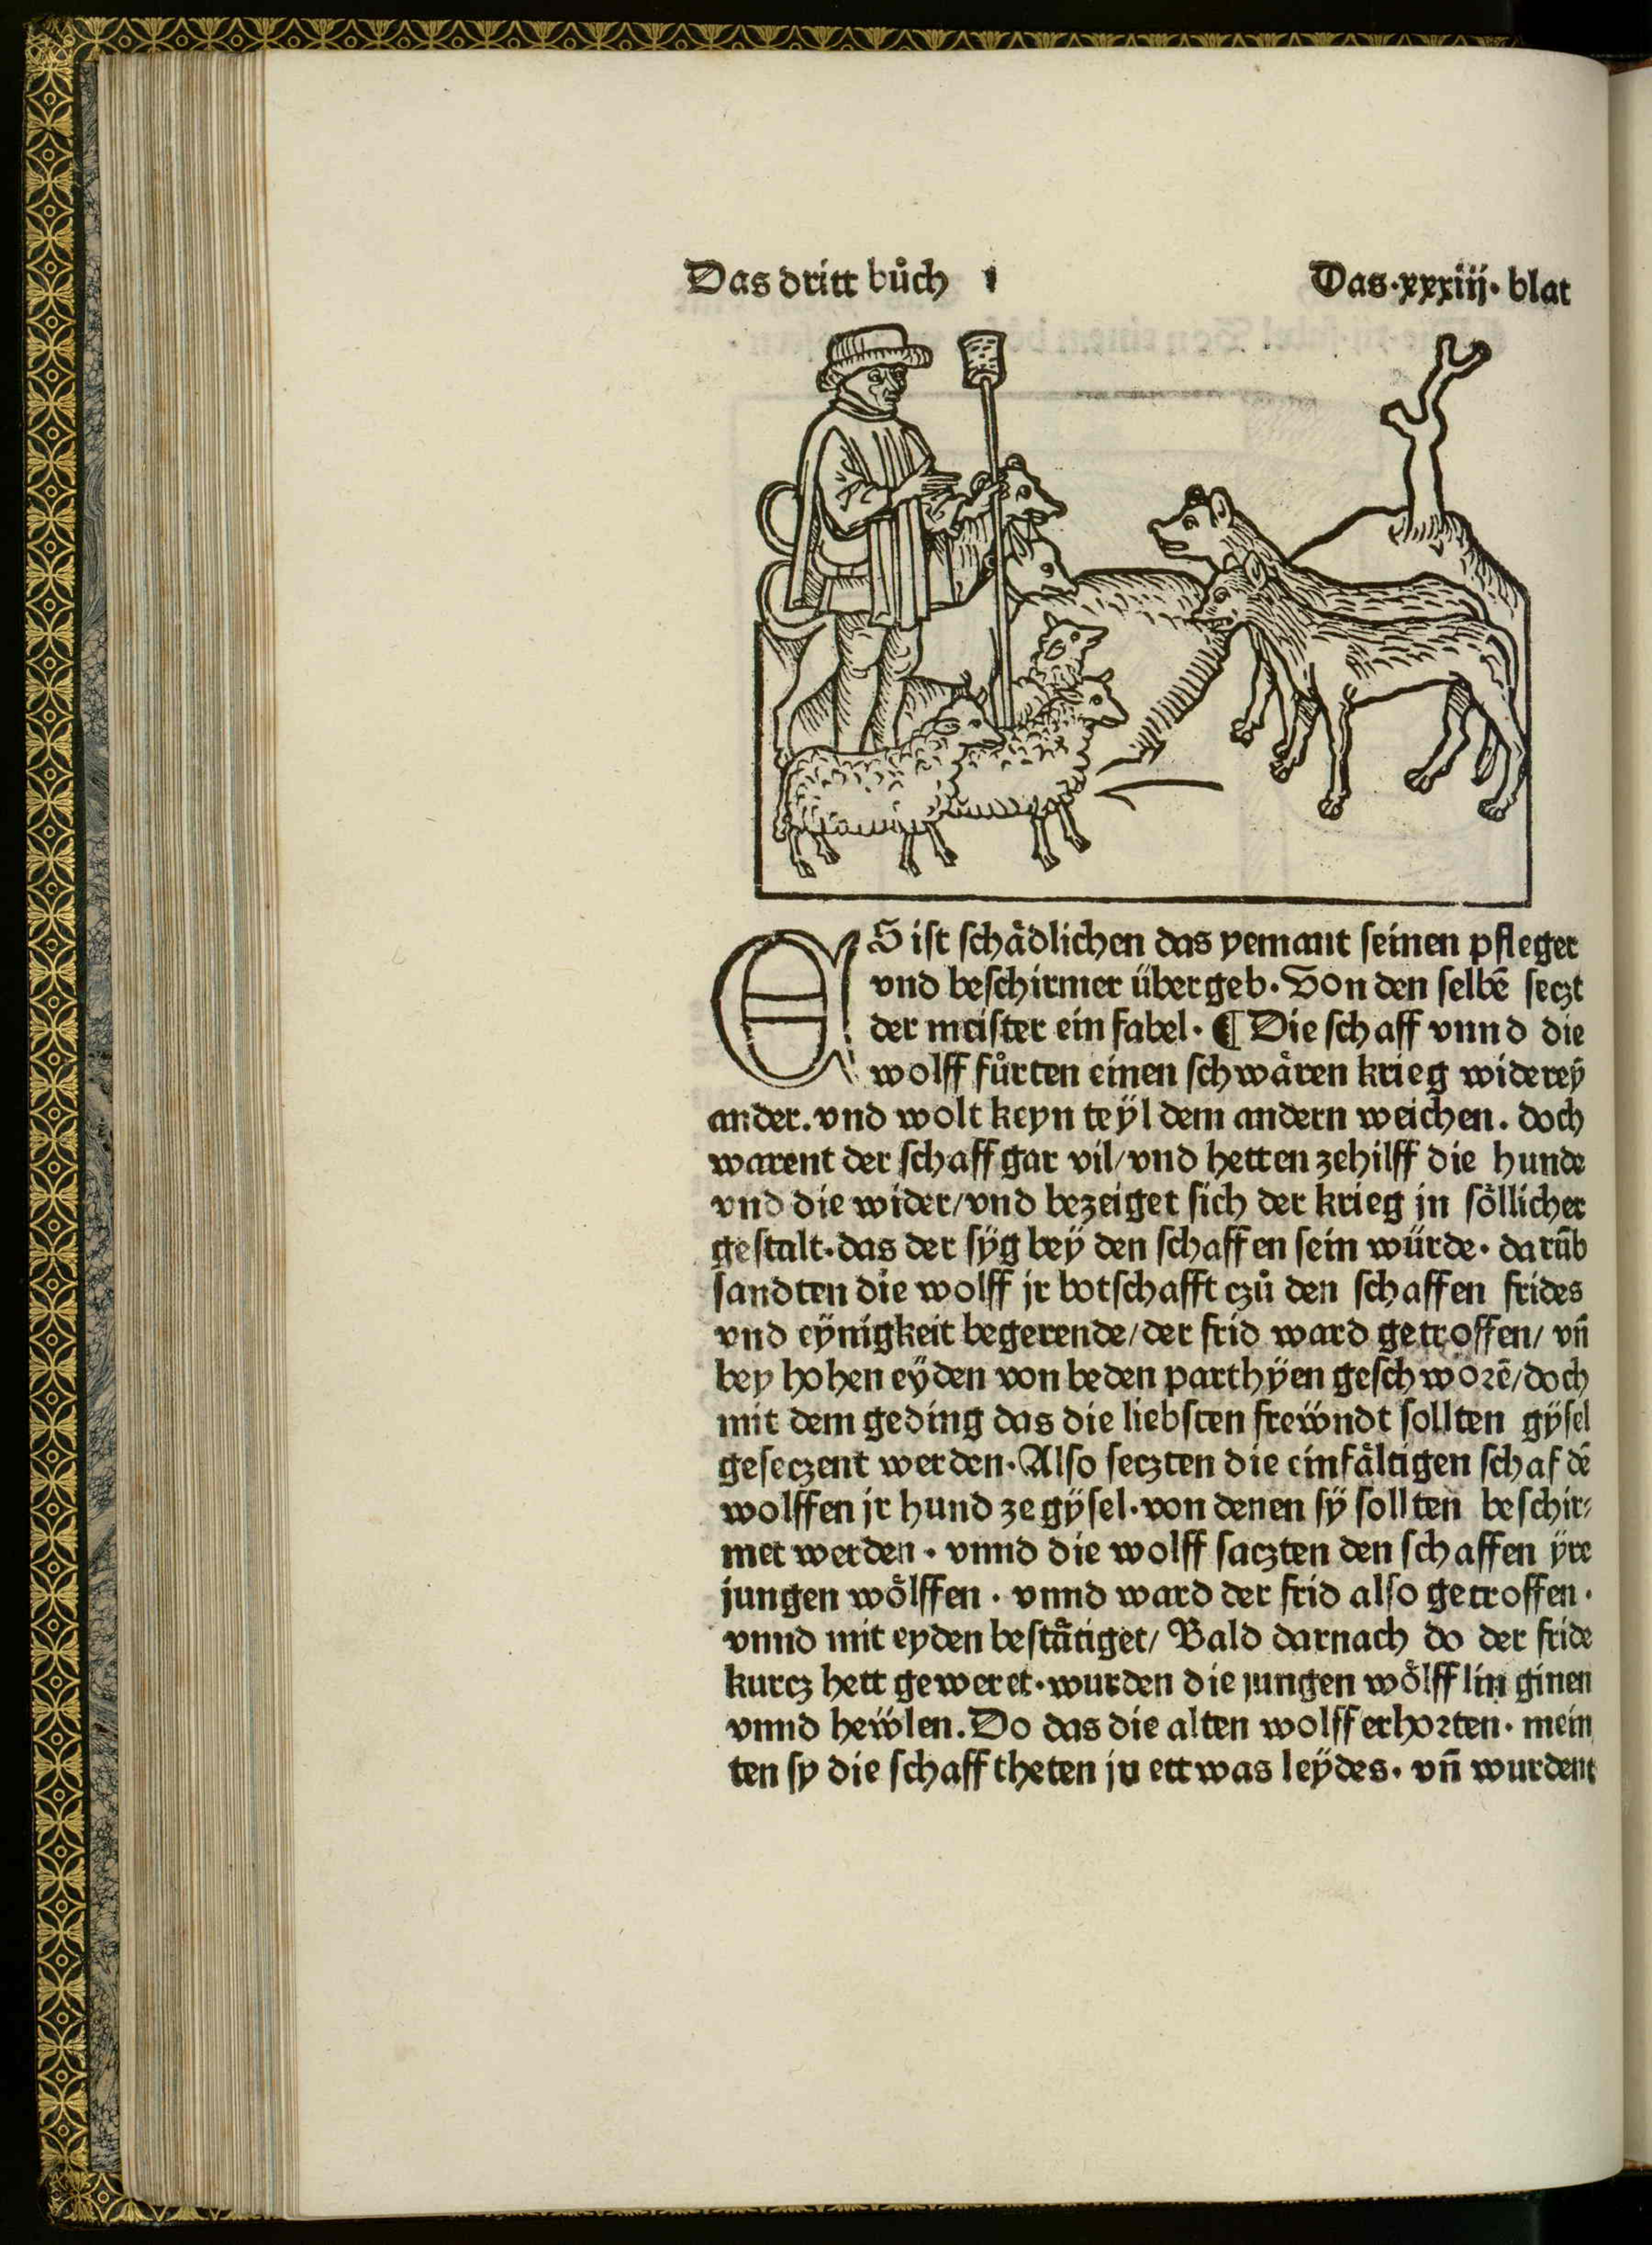 Das dritt bůch
Das·xxxiij·blat
ES ist schådlichen das yemant seinen pfleger
vnd beschirmer übergeb. Von den selbē seczt
der meister ein fabel. ¶ Die schaff vnnd die
wolff fůrten einen schwåren krieg widereÿ
ander. vnd wolt keyn teÿl dem andern weichen. doch
warent der schaff gar vil/ vnd hetten zehilff die hunde
vnd die wider/ vnd bezeiget sich der krieg in sőllicher
gestalt. das der sÿg beÿ den schaffen sein würde. darūb
sandten die wolff jr botschafft czů den schaffen frides
vnd eÿnigkeit begerende/ der frid ward getroffen/ vn̄
bey hohen eÿden von beden parthÿen geschworē/ doch
mit dem geding das die liebsten freẅndt sollten gÿsel
geseczent werden. Also seczten die einfåltigen schaf dē
wolffen jr hund ze gÿsel. von denen sÿ sollten beschir⸗
met werden. vnnd die wolff saczten den schaffen ÿre
jungen wőlffen. vnnd ward der frid also getroffen.
vnnd mit eyden beståtiget/ Bald darnach do der fride
kurcz hett geweret. wurden die jungen wőlfflin ginen
vnnd heẅlen. Do das die alten wolff erhorten. mein
ten sy die schaff theten jn ettwas leÿdes. vn̄ wurdent